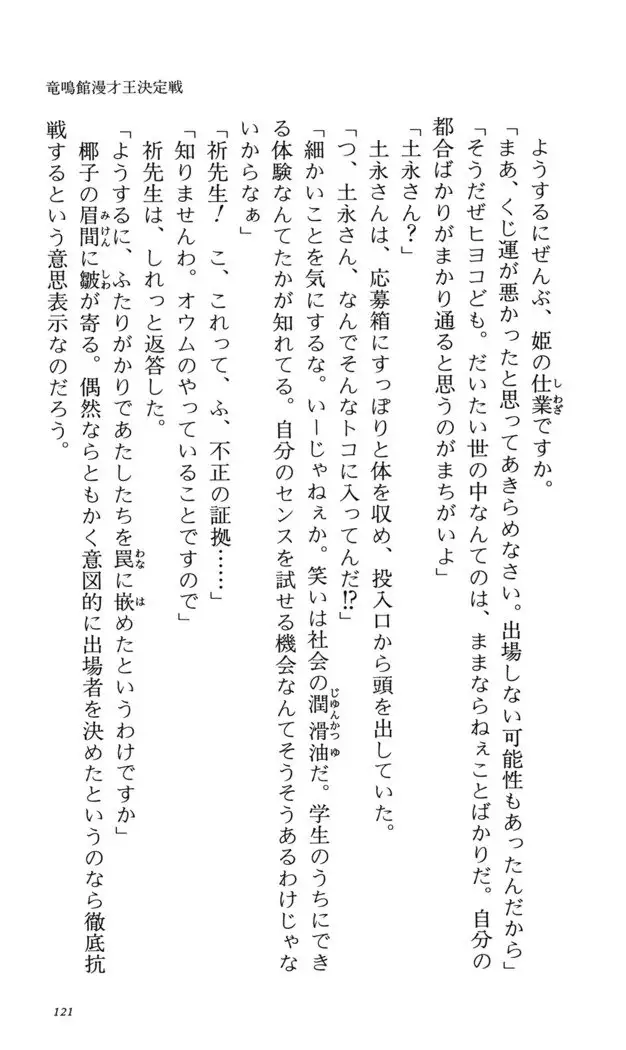 竜鳴館漫才王決定戦
ようするにぜんぶ、姫の仕業ですか。
「まあ、くじ運が悪かったと思ってあきらめなさい。出場しない可能性もあったんだから」
「そうだぜヒヨコども。だいたい世の中なんてのは、ままならねぇことばかりだ。自分の
都合ばかりがまかり通ると思うのがまちがいよ」
「土永さん？」
土永さんは、応募箱にすっぽりと体を収め、投入口から頭を出していた。
「つ、土永さん、なんでそんなトコに入ってんだ⁉」
「細かいことを気にするな。いーじゃねぇか。笑いは社会の潤滑油だ。学生のうちにでき
る体験なんてたかが知れてる。自分のセンスを試せる機会なんてそうそうあるわけじゃな
いからなぁ」
「祈先生！　こ、これって、ふ、不正の証拠……」
「知りませんわ。オウムのやっていることですので」
祈先生は、しれっと返答した。
「ようするに、ふたりがかりであたしたちを罠に嵌めたというわけですか」
椰子の眉間に皺が寄る。偶然ならともかく意図的に出場者を決めたというのなら徹底抗
戦するという意思表示なのだろう。
しわざ
じゆんかつゆ
わな
は
みけん
しわ
121